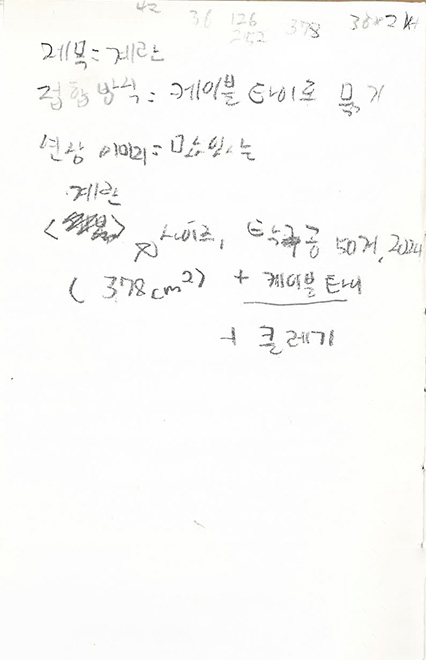 42 36 126 378
252
제목 = 계란
접합 방식 = 케이블 타이로 묶기
연상 이미지 =
계란
사이즈, 탁구공 50개, 2024
(378cm²) + 케이블 타이
+ 클레기